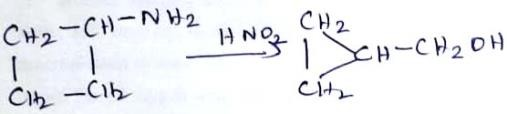 CH2-CH-NH2
CH2-CH2
HNO2
CH2
CH-CH2OH
CH2